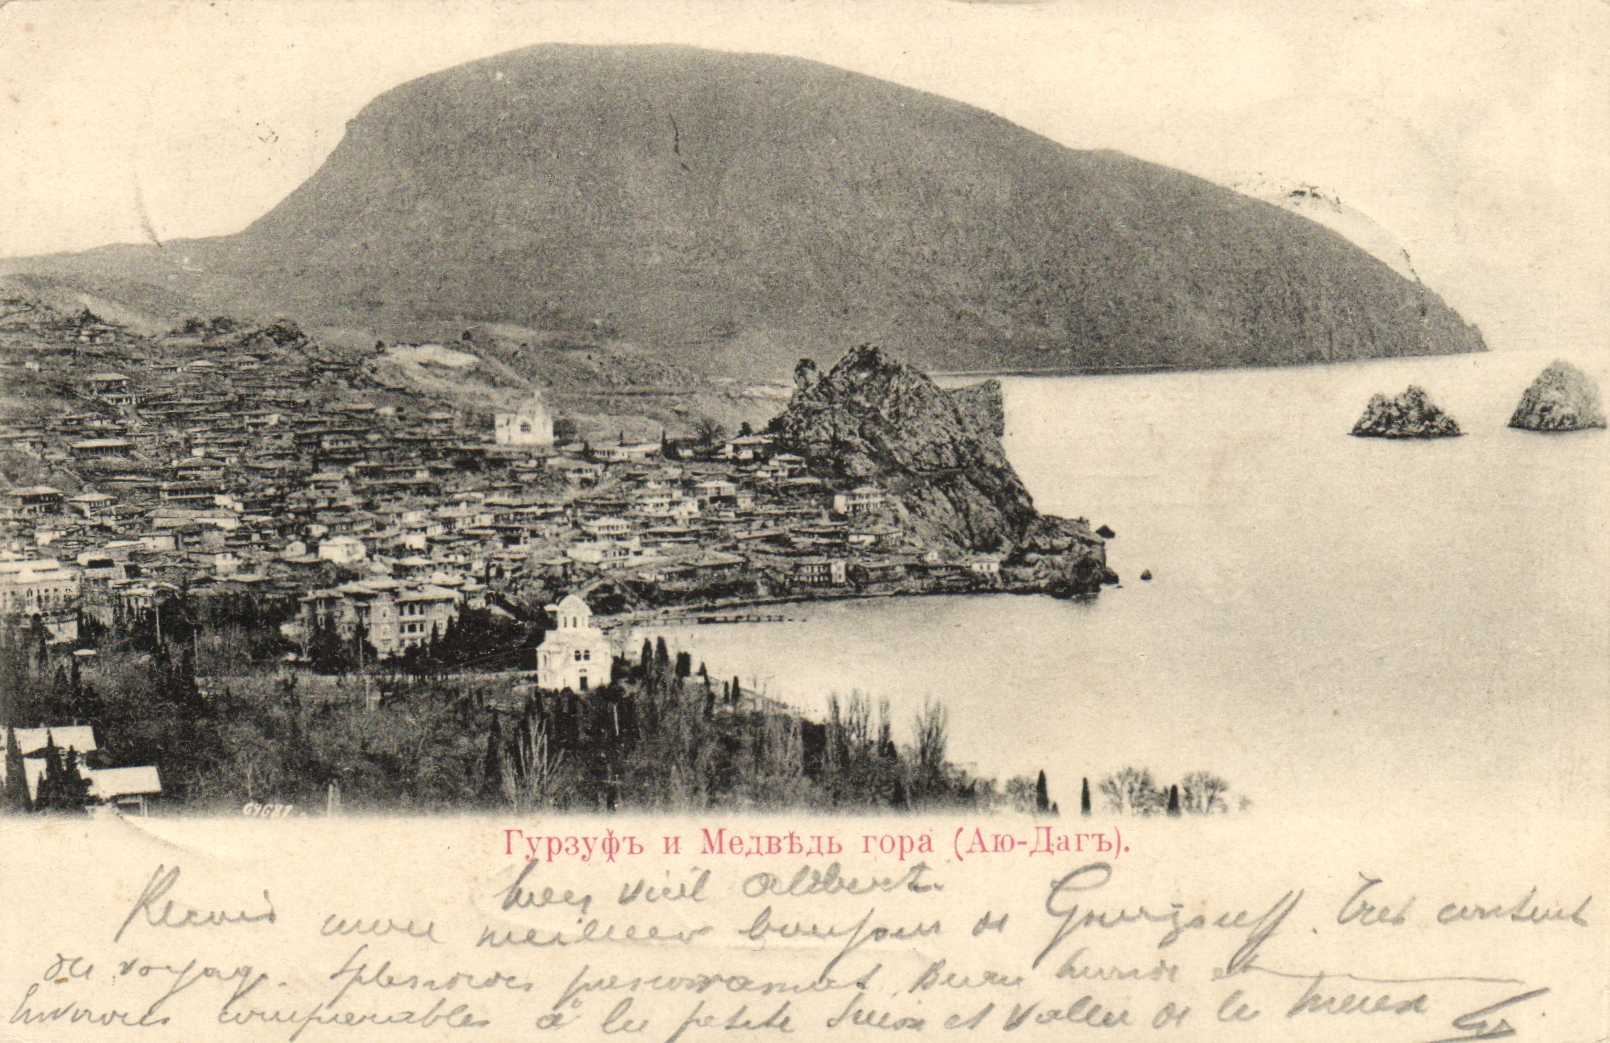 Гурзуфъ и Медвѣдь гора (Аю-Дагъ).
vieil Albert.
Recois mon meilleur bonjour de Gourzouff. Très content
du voyage. Splendides panoramas. et
Environs comparables à la petite Suisse et vallée de la Meuse